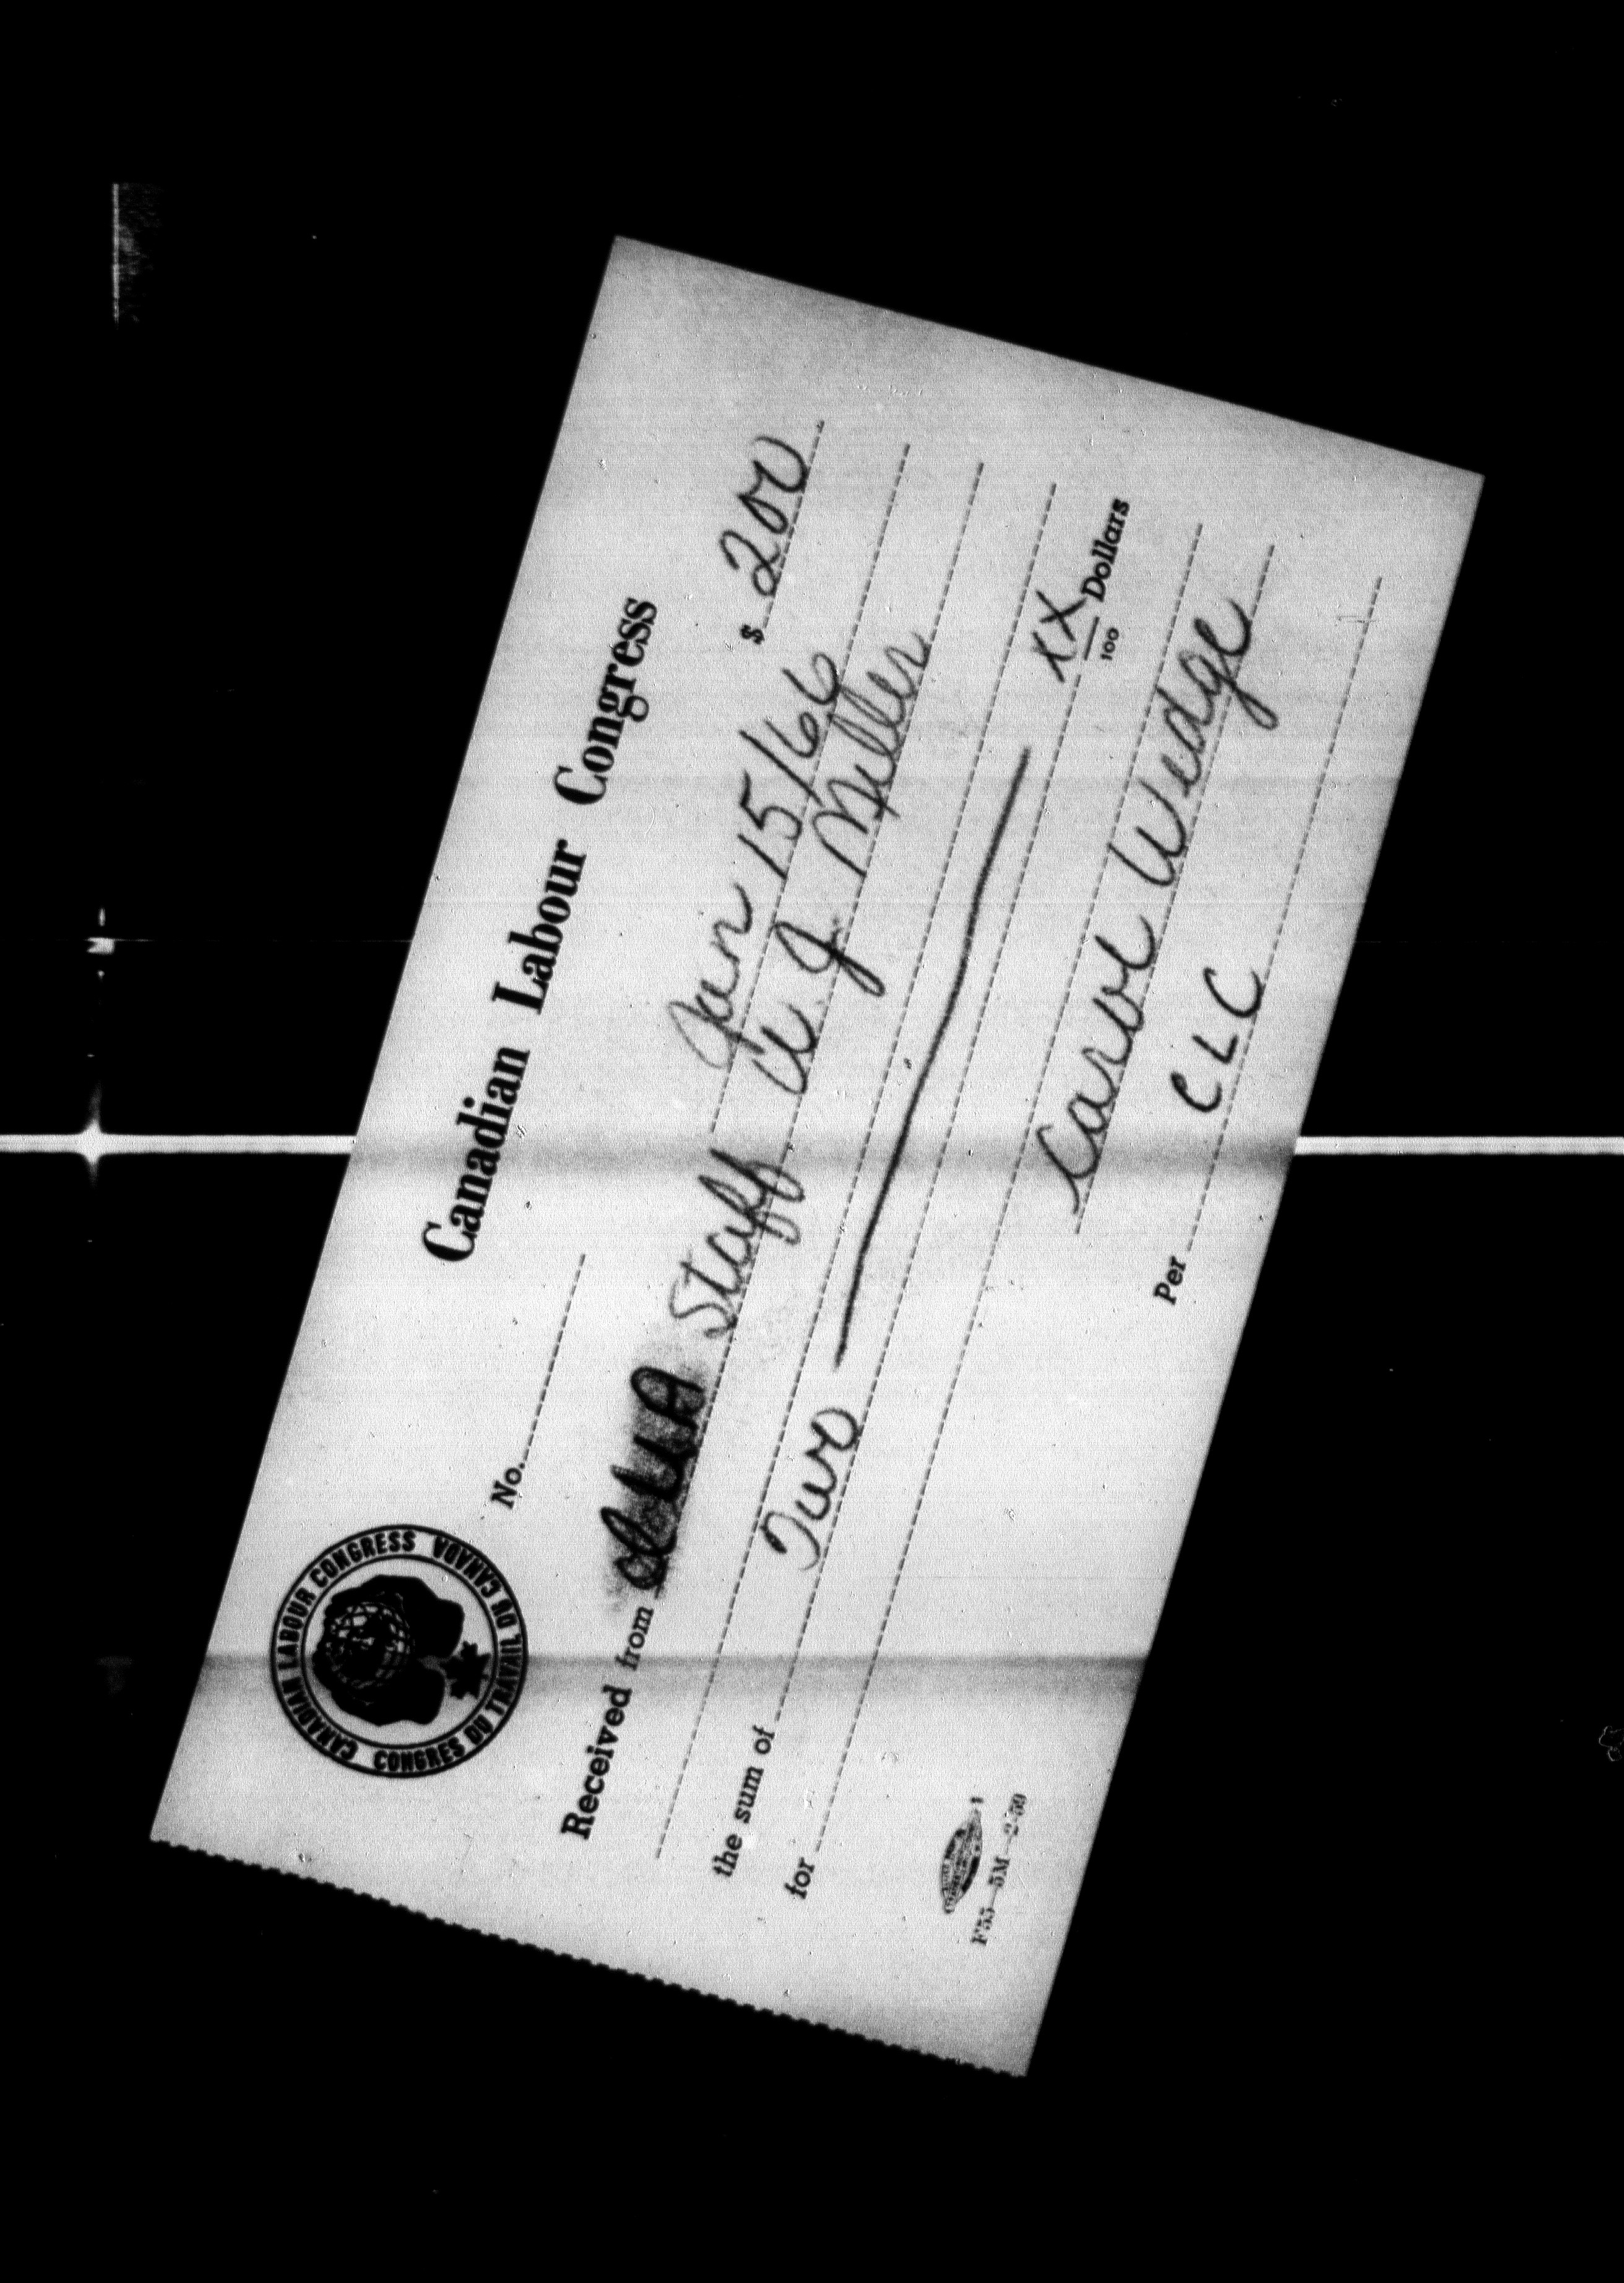 CANADIAN LABOUR CONGRESS
CONGRES DU TRAVAIL DU CANADA
Canadian Labour Congress
No.
$ 200
Jan 15/66
Received from Staff W. J. Miller
the sum of Two XX/100 Dollars
for
Carol Wedge
Per CLC
F55—5M—2-59